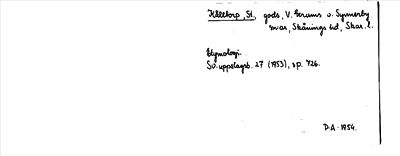 Kålltorp, St., gods, V. Gerums o. Synnerby
snar, Skånings hd, Skar. l.
Etymologi.
Sv. uppslagsb. 27 (1953), sp. 726.
D.A. 1954.